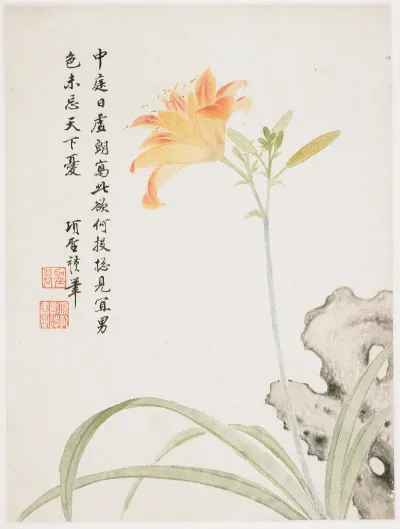 中庭日虛朗寫此欲何投總見宜男
色未忘天下憂
項聖謨筆